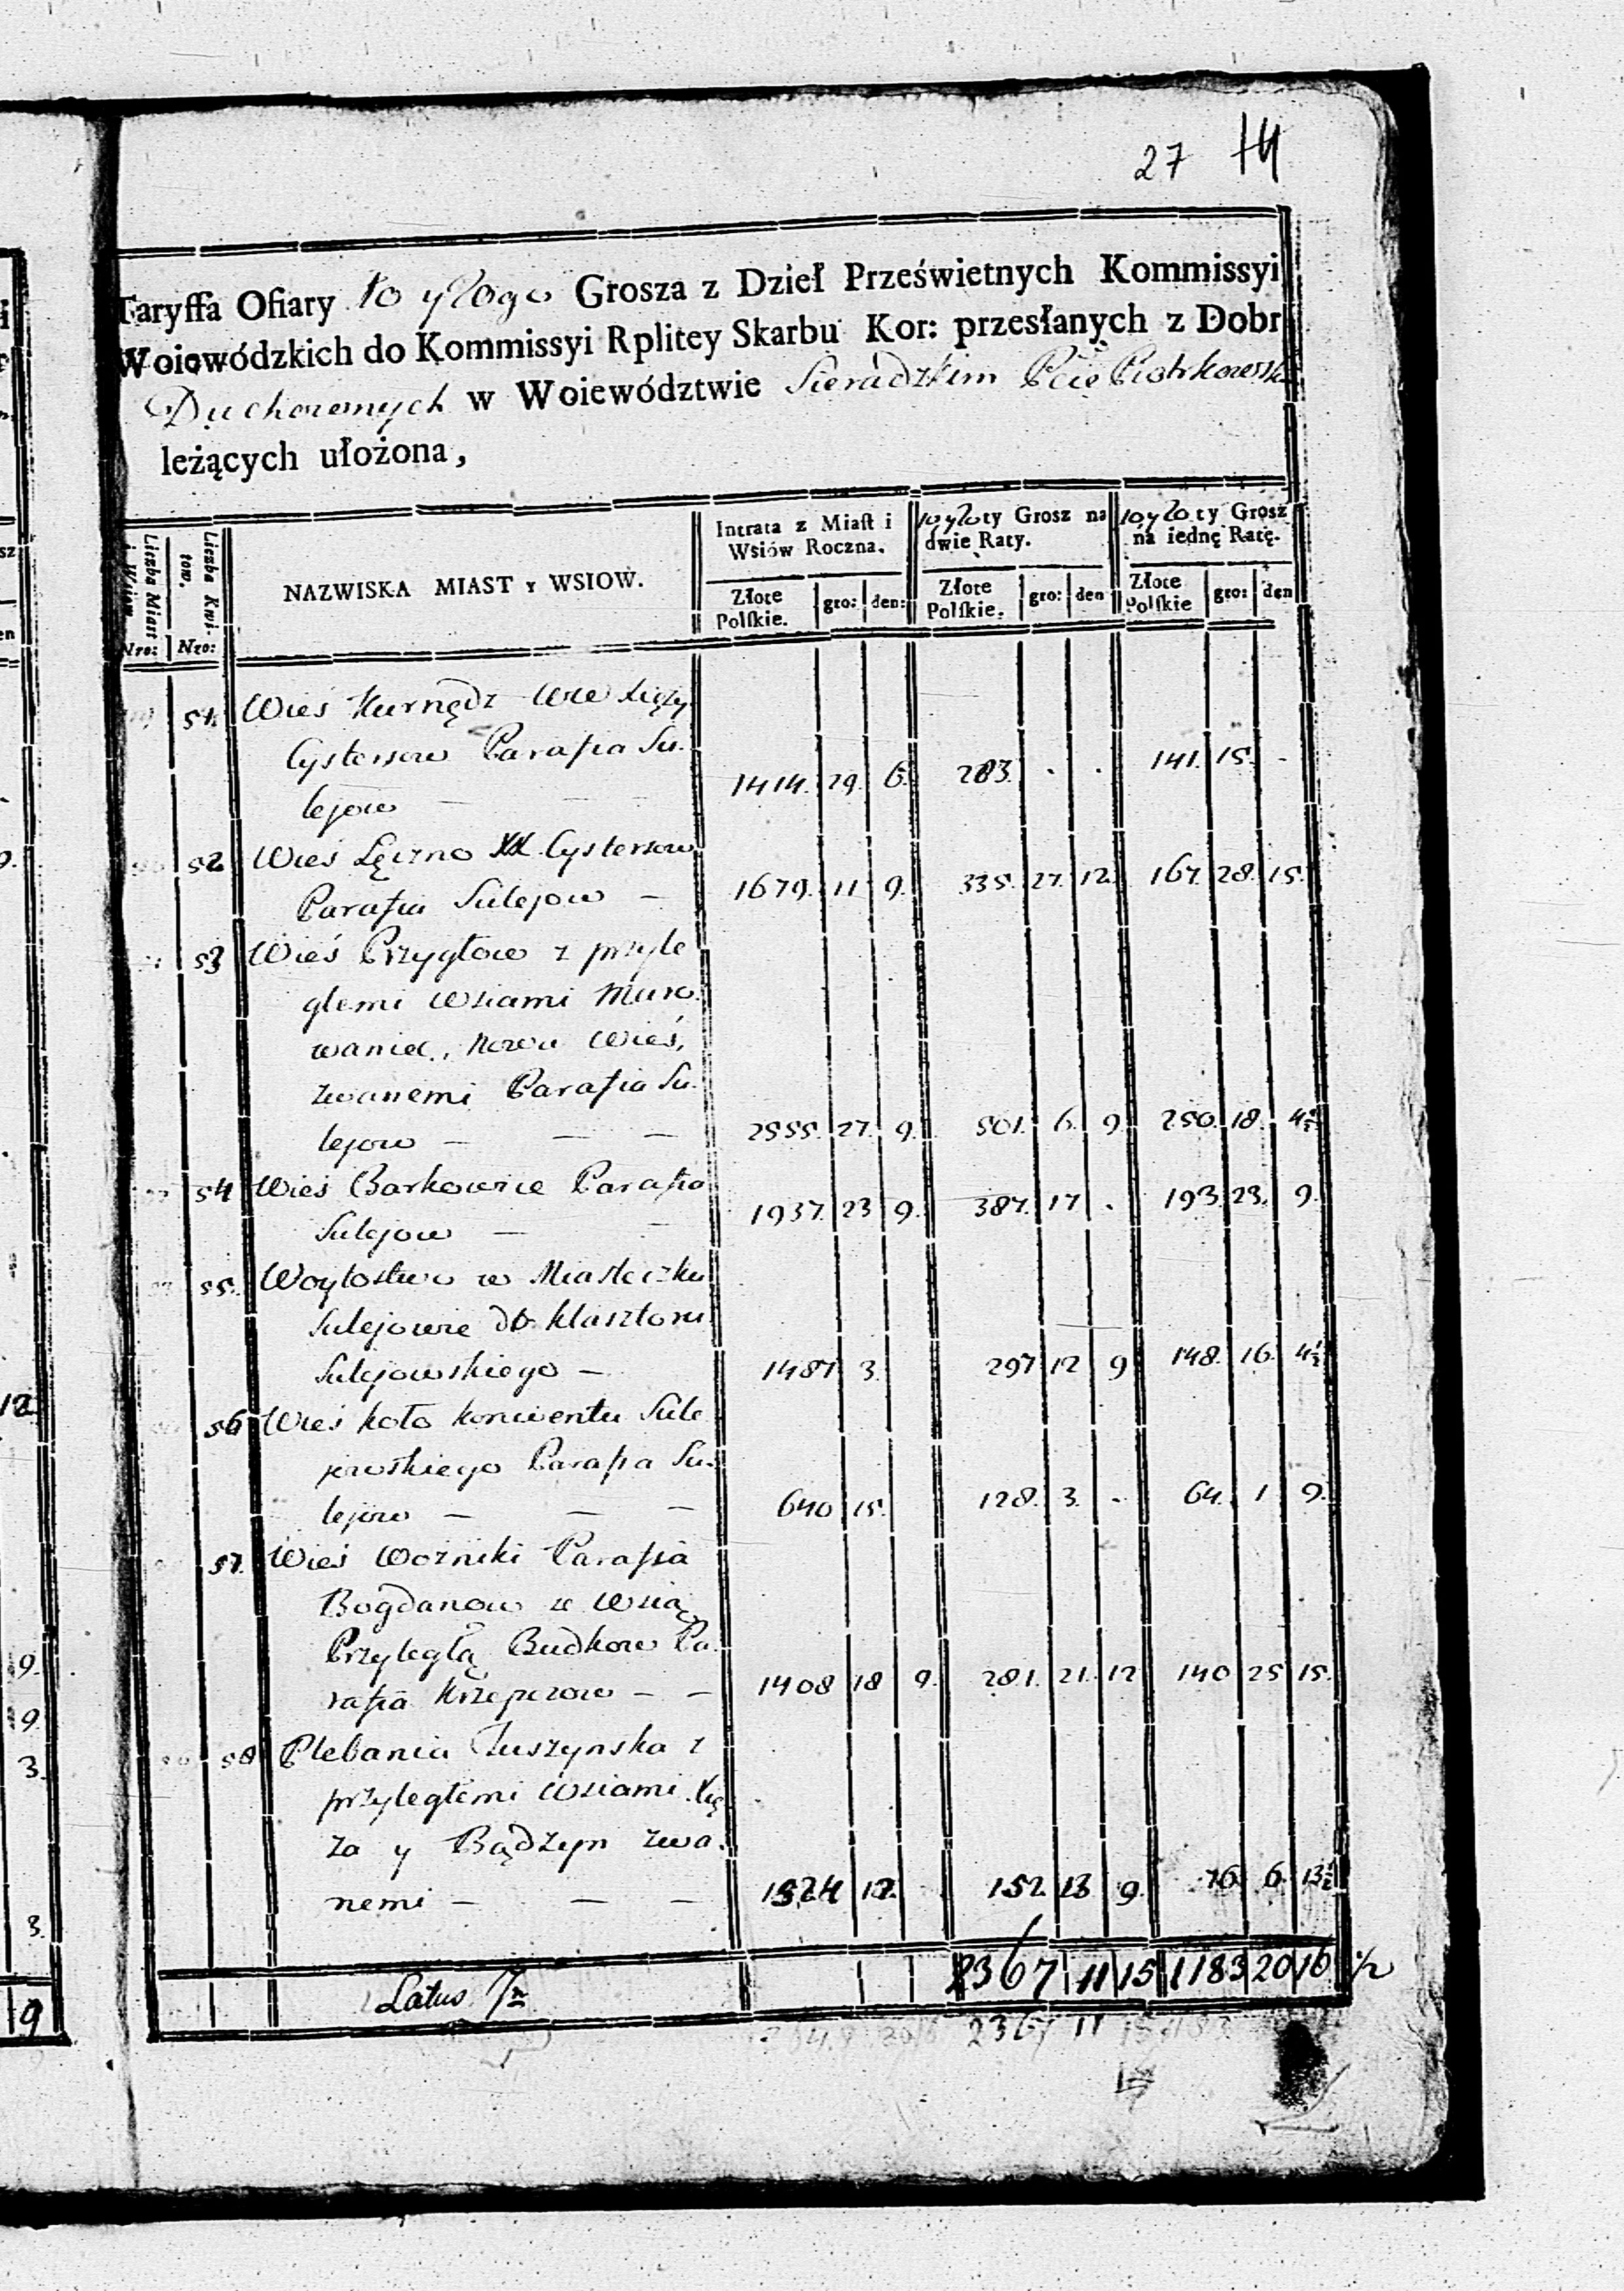 27 14
Taryffa Ofiary 10 y 20go Grosza z Dzieł Prześwietnych Kommissyi
Woiewódzkich do Kommissyi Rplitey Skarbu Kor: przesłanych z Dobr
Duchownych w Woiewództwie Sieradzkim Pcie Piotrkowsk
leżących ułożona,
Liczba Miast i Wsiow. Nro:
Liczba Kwi- tow. Nro:
NAZWISKA MIAST y WSIOW.
Intrata z Miast i Wsiów Roczna.
10 y 20ty Grosz na dwie Raty.
10 y 20ty Grosz na iednę Ratę.
Złote Polskie. gro: den: Złote Polskie. gro: den Złote Polskie gro: den
51. Wieś Kurnędz Xięży
Cystersow Parafia Su-
lejow — — — 1414. 29. 6. 283. . . 141. 15. -
52 Wieś Łęczno XX. Cystersow
Parafia Sulejow — 1679. 11 9. 335. 27. 12. 167. 28. 15.
53 Wieś Przygłow z przyle
głemi wsiami Muro-
waniec, Nowa Wieś,
zwanemi Parafia Su-
lejow — — — 2555. 27. 9. 501. 6. 9. 250. 18. 4½
54 Wieś Barkowice Parafia
Sulejow — — 1937. 23 9. 387. 17 . 193. 23. 9.
55. Woytostwo w Miasteczku
Sulejowie do klasztoru
Sulejowskiego — 1487 3. 297 12 9 148. 16. 4½
56 Wieś Koło konwentu Sule
jowskiego Parafia Su-
lejow — — — 640 15. 128. 3. - 64. 1 9.
57. Wieś Woźniki Parafia
Bogdanow z Wsią
Przyległą Budkow Pa-
rafia Krzepczow — — 1408 18 9. 281. 21. 12 140 25 15.
58 Plebania Tuszynska z
przyległemi Wsiami Xię
za y Bądzyn zwa-
nemi — — — 1524 12. 152. 13 9. 76. 6. 13½
Latus 2367 11 15 1183 20 16 ½
2367 11